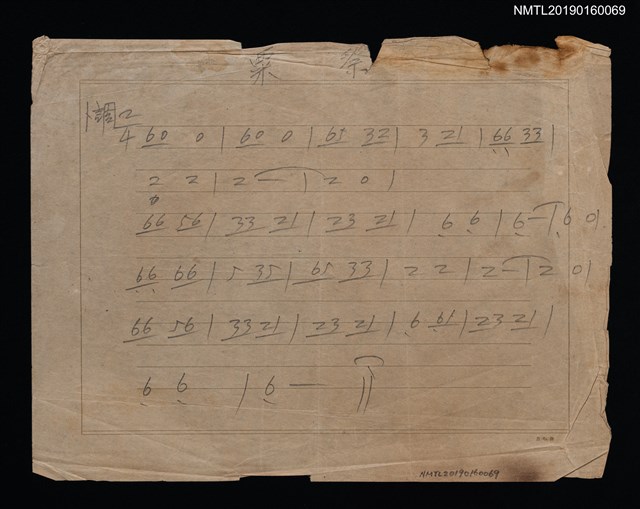 NMTL20190160069
調 2/4 60 0 | 60 0 | 65 32 | 3 21 | 66 33 |
2 2 | 2 — | 2 0 |
66 56 | 33 21 | 23 21 | 6 6 | 6 — | 6 0 |
66 66 | 5 35 | 65 33 | 2 2 | 2 — | 2 0 |
66 56 | 33 21 | 23 21 | 6 61 | 23 21 |
6 6 | 6 — ||
NMTL20190160069